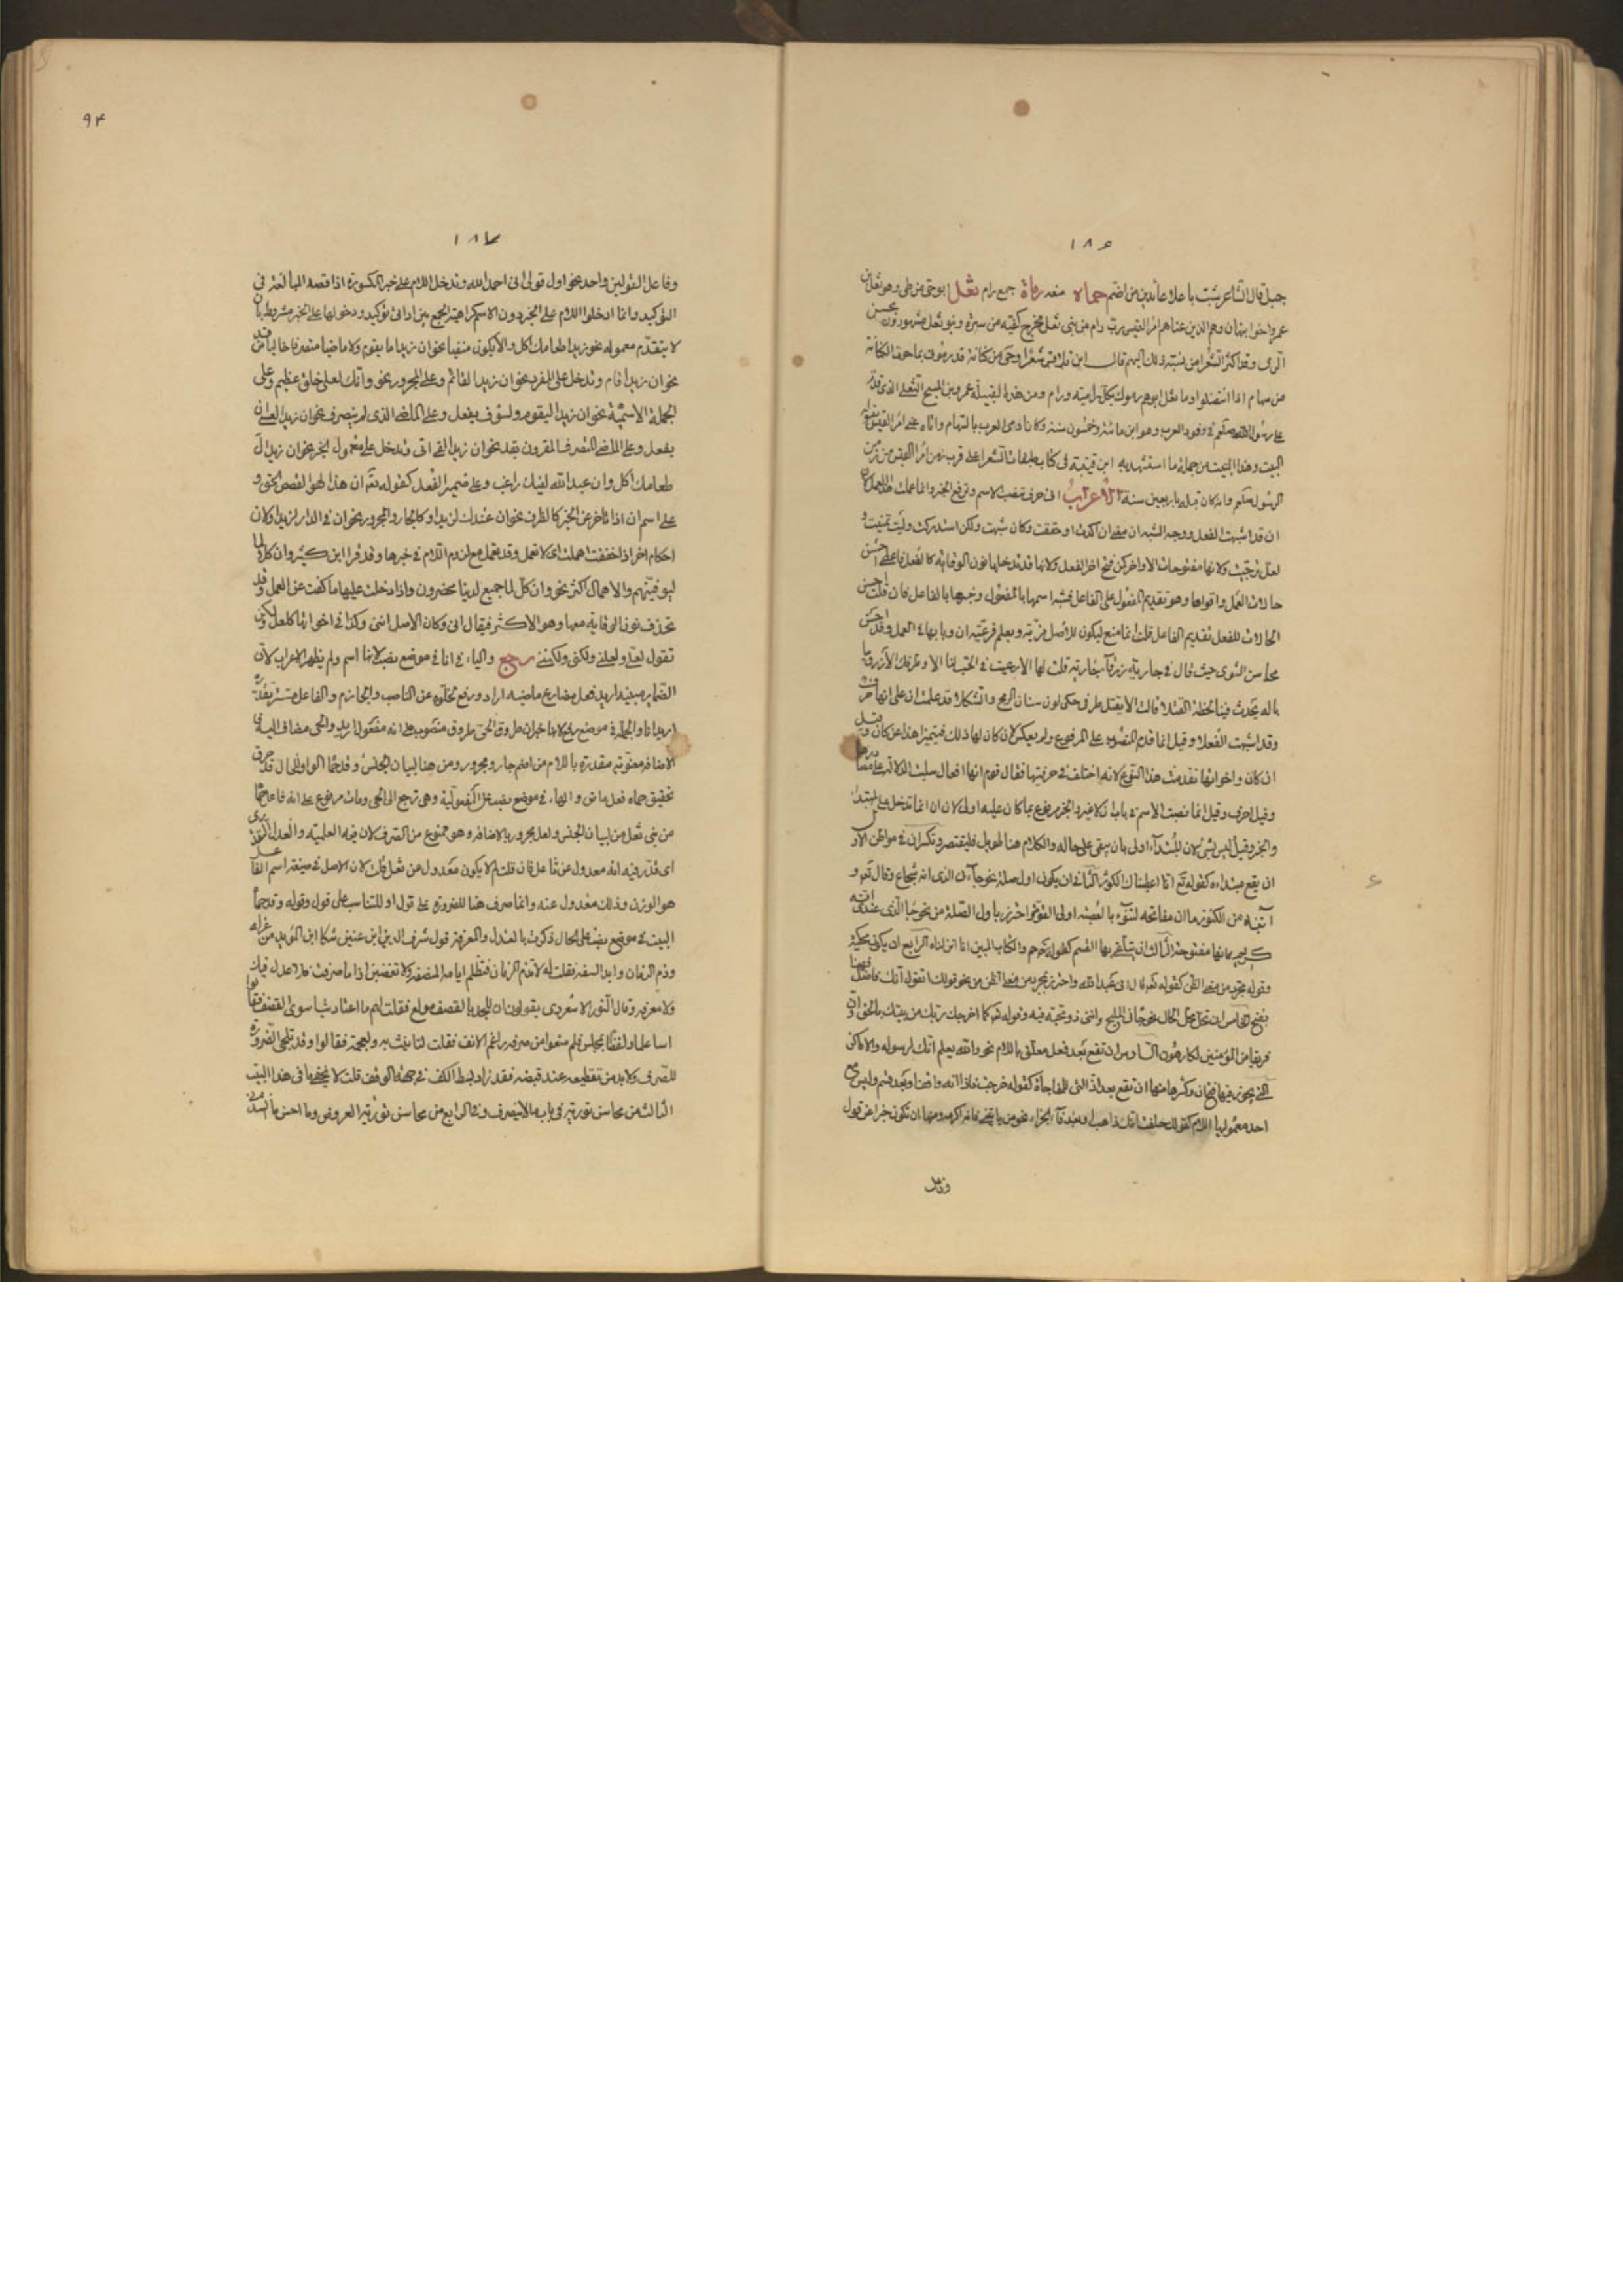 ١٨٦
جبل قال الشاعر شبت باعلا عاندين من اضم حماه منعه رماة جمع رام ثعل ابو حي من طي وهو ثعل بن
عمرو اخوا نبهان وهم الذين عناهم امرؤ القيس رب رام من بني ثعل مخرج كفيه من ستره وبنو ثعل مشهورون بحسن
الرمي وقد اكثر الشعرا من نسبته ذلك اليهم قال
من سهام اذا انتضلوا وما ثعل ابوهم بكل رامية ورام ومن هذه القبيلة عمرو بن المسيح الثعلي الذي قدم
على رسول الله صلعم في وفود العرب وهو ابن مائة وخمسون سنة وكان ارمى العرب بالسهام واياه عنى امرؤ القيس بقوله
البيت وهذا البيت من جملة ما استشهد به ابن قتيبة في كتاب طبقات الشعرا على قرب زمن امرؤ القيس من زمن
الرسول صلعم وانه كان قبله باربعين سنة الاعراب ان حرف تنصب الاسم وترفع الخبر وانما عملت هذا العمل لان
ان قد اشبهت الفعل ووجه الشبه ان معنى ان اكدت او حققت وكان شبهت ولكن استدركت وليت تمنيت و
لعل ترجيت ولانها مفتوحات الاواخر كن فتح اخر الفعل ولانها قد تدخلها نون الوقاية كالفعل فاعطي احسن
حالات العمل واقواها وهو تقديم المفعول على الفاعل فشبه اسمها بالمفعول وخبرها بالفاعل فان قلت احسن
الحالات للفعل تقديم الفاعل قلت انما منع ليكون للاصل مزية ويعلم فرعية ان وبابها في العمل وقد احسن
محاسن الشوى حيث قال في جارية زرقآ
وقد اشبهت الفعلا وقيل انما قدم المنصوب على المرفوع ولم يعكس لان كان لها ذلك فيتميز هذا عن كان وقيل
ان كان واخواتها تقدمت هذا النوع لانه اختلف في حرفيتها فقال قوم انها افعال سلبت الدلالة على
وقيل احرف وقيل انما نصبت الاسم في باب ان لا غير والخبر مرفوع بما كان عليه اولا لان ان انما تدخل على المبتدا
والخبر وقيل ليس بشئ لان المبتدآء اولى بان يبقى على حاله والكلام هنا طويل فليقتصر وتكسر ان في مواطن الاو
ان يقع مبتداء كقوله تع انا اعطيناك الكوثر الثاني ان يكون اول صلة نحو جآءني الذي انه شجاع وقال تع و
آتيناه من الكنوز ما ان مفاتحه لتنوء بالعصبة اولى القوة واحترز باول الصلة من نحو جا الذي عندي انه
كريم فانها مفتوحة الثالث ان يتلقى بها القسم كقوله حم والكتاب المبين انا انزلناه الرابع ان يكون محكية
وقوله بجرد من معنى الظن كقوله تع قال اني عبد الله واحترز بمجرد من معنى الظن من نحو قولك اتقول انك فاضل فهنا
بفتح الخامس ان تحل محل الحال وقوله تع كما اخرجك ربك من بيتك بالحق وان
فريقا من المؤمنين لكارهون السادس ان تقع بعد فعل معلق باللام نحو والله يعلم انك لرسوله والاماكن
التي يجوز فيها فتح ان وكسرها منها ان تقع بعد اذا التي للمفاجاة كقوله خرجت فاذا انه واقف وبعد قسم وليس مع
احد معموليها اللام كقولك حلفت انك ذاهب او بعد فآ الجزاء نحو من ياتيني فانه اكرمه ومنها ان تكون خبرا عن قول
وفاعل
٩٤
١٨٧
وفاعل القولين واحد نحو اول قولي اني احمد الله وتدخل اللام على خبر المكسورة اذا قصد المبالغة في
التوكيد وانما ادخلوا اللام على الخبر دون الاسم كراهية الجمع بين اداتي توكيد ودخولها على الخبر مشروط بان
لا يتقدم معموله نحو زيدا طعامك اكل والا يكون منفيا نحو ان زيدا ما يقوم ولا ماضيا متصرفا خاليا من قد
نحو ان زيدا قام وتدخل على المفرد نحو ان زيدا لقائم وعلى المجرور نحو وانك لعلى خلق عظيم وعلى
الجملة الاسمية نحو ان زيدا ليقوم ولسوف يفعل وعلى الماضي الذي لم يتصرف نحو ان زيدا لعسى ان
يفعل وعلى الماضي المتصرف المقرون بقد نحو ان زيدا لقد اتى وتدخل على معمول الخبر نحو ان زيدا لَ
طعامك اكل وان عبد الله لفيك راغب وعلى ضمير الفصل كقوله تع ان هذا لهو القصص الحق و
على اسم ان اذا تاخر عن الخبر كالظرف نحو ان عندك لزيدا وكالجار والمجرور نحو ان في الدار لزيدا ولان
احكام اخر اذا خففت اهملت اي لا تعمل وقد تعمل مع لزوم اللام في خبرها وقد قرا ابن كثير وان كلا لما
ليوفينهم والاهمال اكثر نحو وان كل لما جميع لدينا محضرون واذا دخلت عليها ما كفت عن العمل وقد
تحذف نون الوقاية معها وهو الاكثر فيقال اني وكان الاصل انني وكذا في اخواتها كلعل ولكن
تقول لعلي ولعلني ولكني ولكنني رجع والياء في اني في موضع نصب لانها اسم ولم يظهر الاعراب لان
الضماير مبنية اريد فعل مضارع ماضيه اراد ورفع لخلوه عن الناصب والجازم والفاعل مستتر تقديره
اريد انا والجملة في موضع رفع لانها خبر ان طروق الحي طروق منصوب على انه مفعول اريد والحي مضاف اليه
الاضافة معنوية مقدرة باللام من اضم جار ومجرور ومن هنا لبيان الجنس وقد حماه الواو للحال قد حرف
تحقيق حماه فعل ماض والهاء في موضع نصب على المفعولية وهي ترجع الى الحي ورماة مرفوع على انه فاعل حما
من بني ثعل من لبيان الجنس وثعل مجرور بالاضافة وهو ممنوع من الصرف لان فيه العلمية والعدل التقديري
اي قدر فيه انه معدول عن ثاعل فان قلت لم لا يكون معدول عن ثعل قلت لان الاصل في صيغة اسم الفاعل
هو الوزن وذلك معدول عنه وانما صرف هنا للضرورة على قول او للتناسب على قول وقوله وقد حماه
البيت في موضع نصب على الحال ذكرت بالعدل والمعرفة قول شرف الدين ابن عنين شكا ابن المؤيد من عزله
وذم الزمان وابدا السفه فقلت له لا تذم الزمان فتظلم ايامه المنصفة ولا تغضبن اذا ما صرفت فلا عدل فيك
ولا معرفه وقال النور الاسعردي يقولون ان المجد بالقصف مولع فقلت لهم ما اعتاد شيا سوى القصف فقالوا
اسا علما ولفظا بمجلس فلم منعوا من صرفه راغم الانف فقلت لتانيث به ولعجمة فقالوا وقد تلجي الضرورة
للصرف ولا بد من تقطيعه عند قبضه فقد زاد بسط الكف في جهة الوقف قلت لا يخفى ما في هذا البيت
الثالث من محاسن تورية في باب ما لا ينصرف وفي الرابع من محاسن تورية العروض وما احسن ما